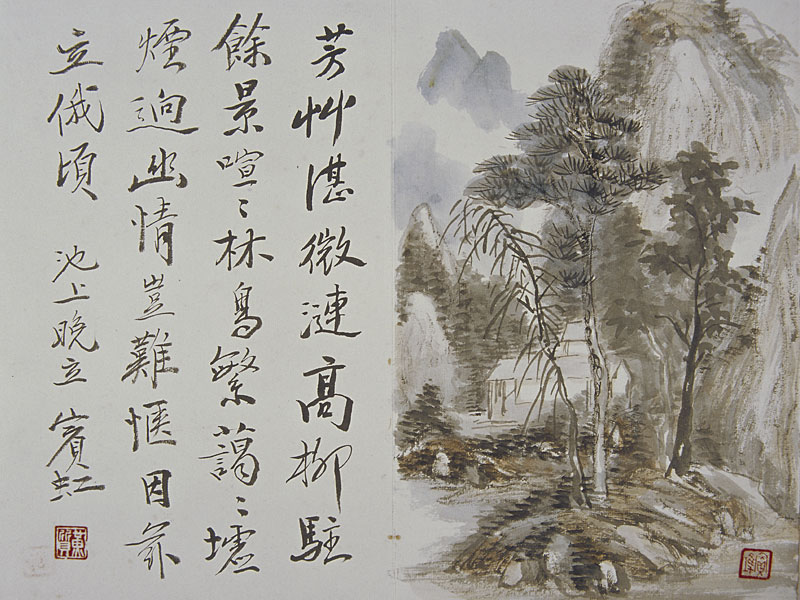 芳艸湛微漣高柳駐
餘景喧〻林鳥繁藹〻墟
煙迥幽情豈難愜因
立俄頃 池上晚立 賓虹